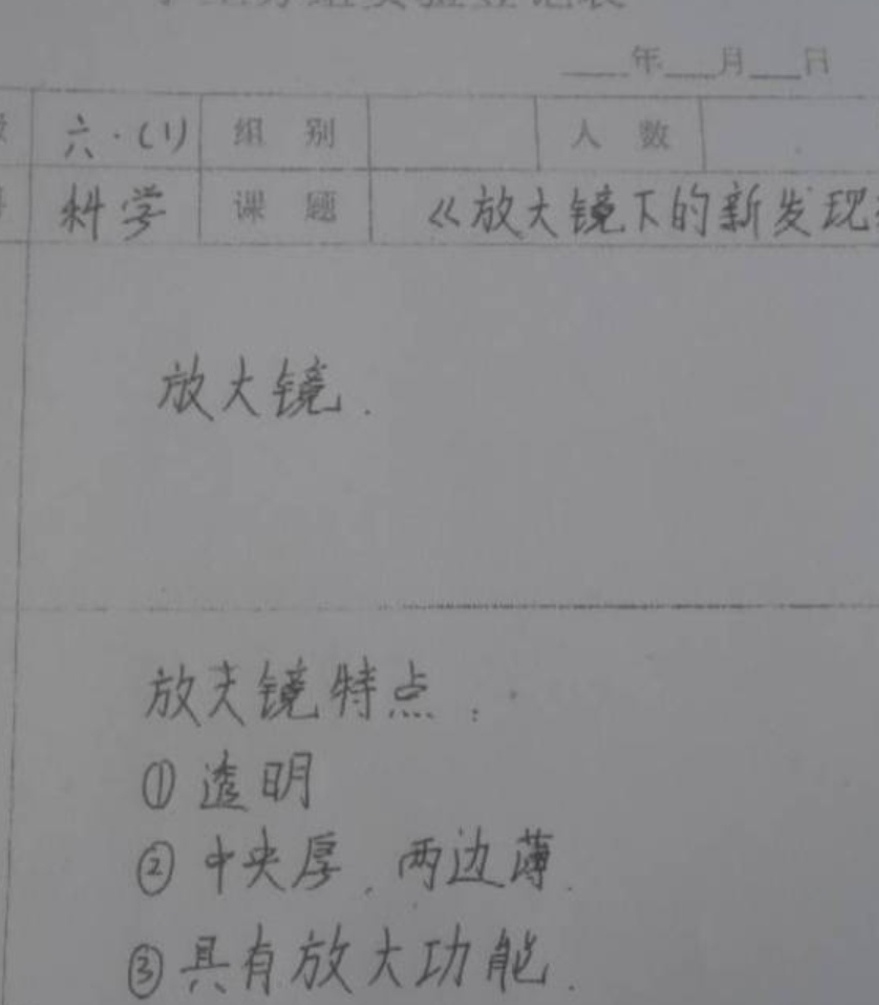 ___年___月___日
六·(1) 组 别 人 数
科学 课 题 《放大镜下的新发现
放大镜.
放大镜特点:
① 透明
② 中央厚,两边薄.
③ 具有放大功能.